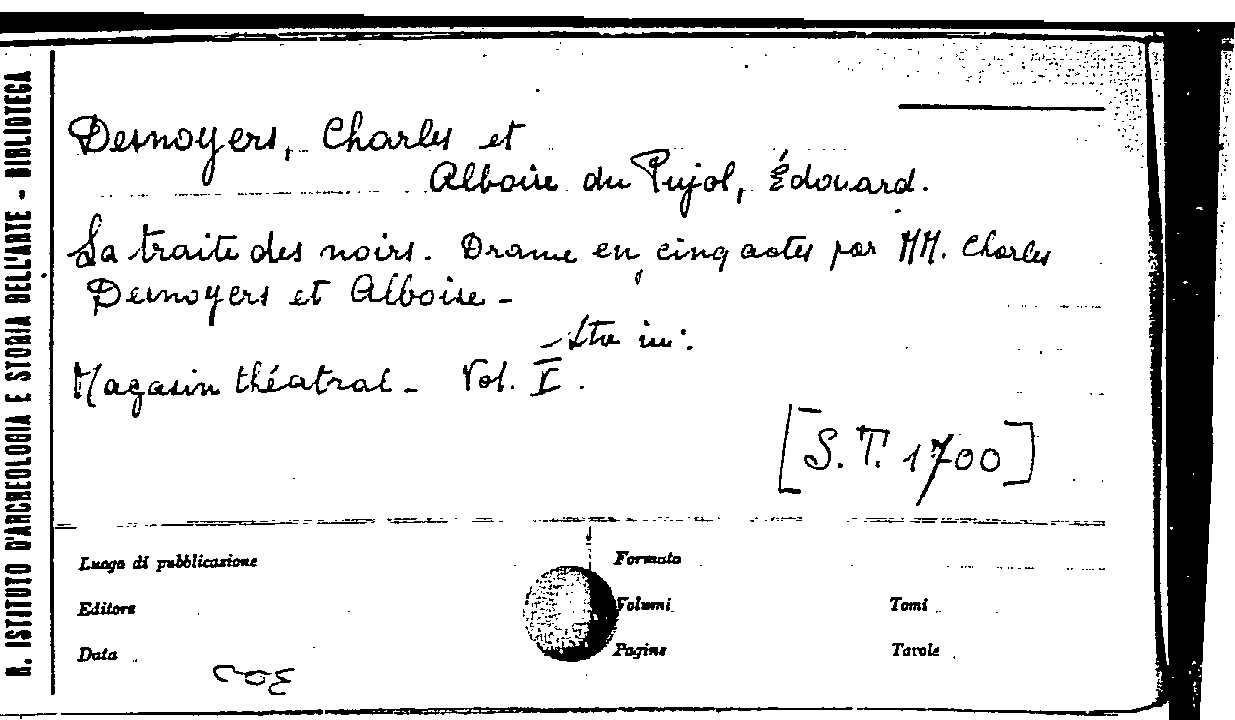 R. ISTITUTO D'ARCHEOLOGIA E STORIA DELL'ARTE - BIBLIOTECA
Desnoyers, Charles et
Alboise du Pujol, Édouard.
La traite des noirs. Drame en cinq actes par MM. Charles
Desnoyers et Alboise -
in:
Magasin théatral - Vol. I.
[S.T. 1700]
Luogo di pubblicazione
Formato
Editore
Volumi
Tomi
Data
Pagine
Tavole